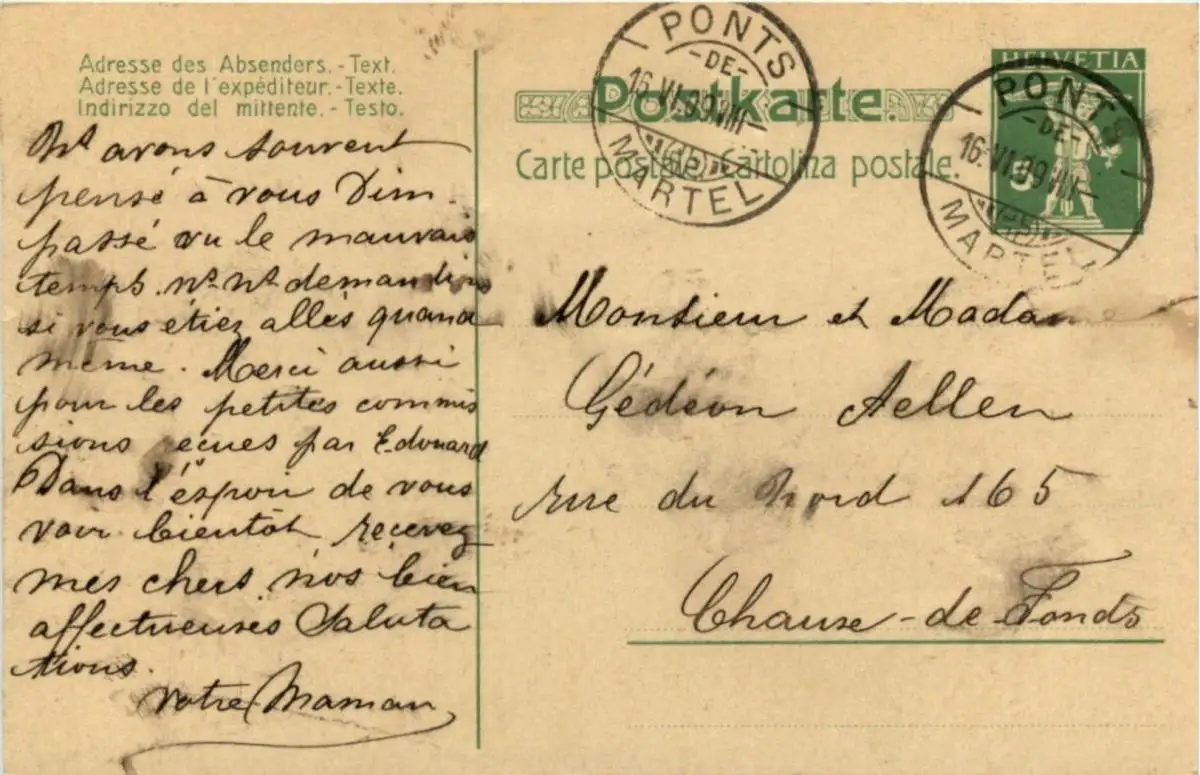 Adresse des Absenders. - Text.
Adresse de l'expéditeur. - Texte.
Indirizzo del mittente. - Testo.
Ns avons souvent
pensé à vous Dim.
passé vu le mauvais
temps. ns. ns demandions
si vous étiez allés quand
même. Merci aussi
pour les petites commis
sions reçues par Edouard
Dans l'espoir de vous
voir bientôt recevez
mes chers, nos bien
affectueuses Saluta
tions.
Votre Maman
Postkarte.
Carte postale. Cartolina postale.
PONTS
-DE-
16.VI.09.VIII-
MARTEL
HELVETIA
5
PONTS
-DE-
16.VI.09.VIII-
MARTEL
Monsieur et Madame
Gédéon Aellen
rue du Nord 165
Chaux-de-Fonds